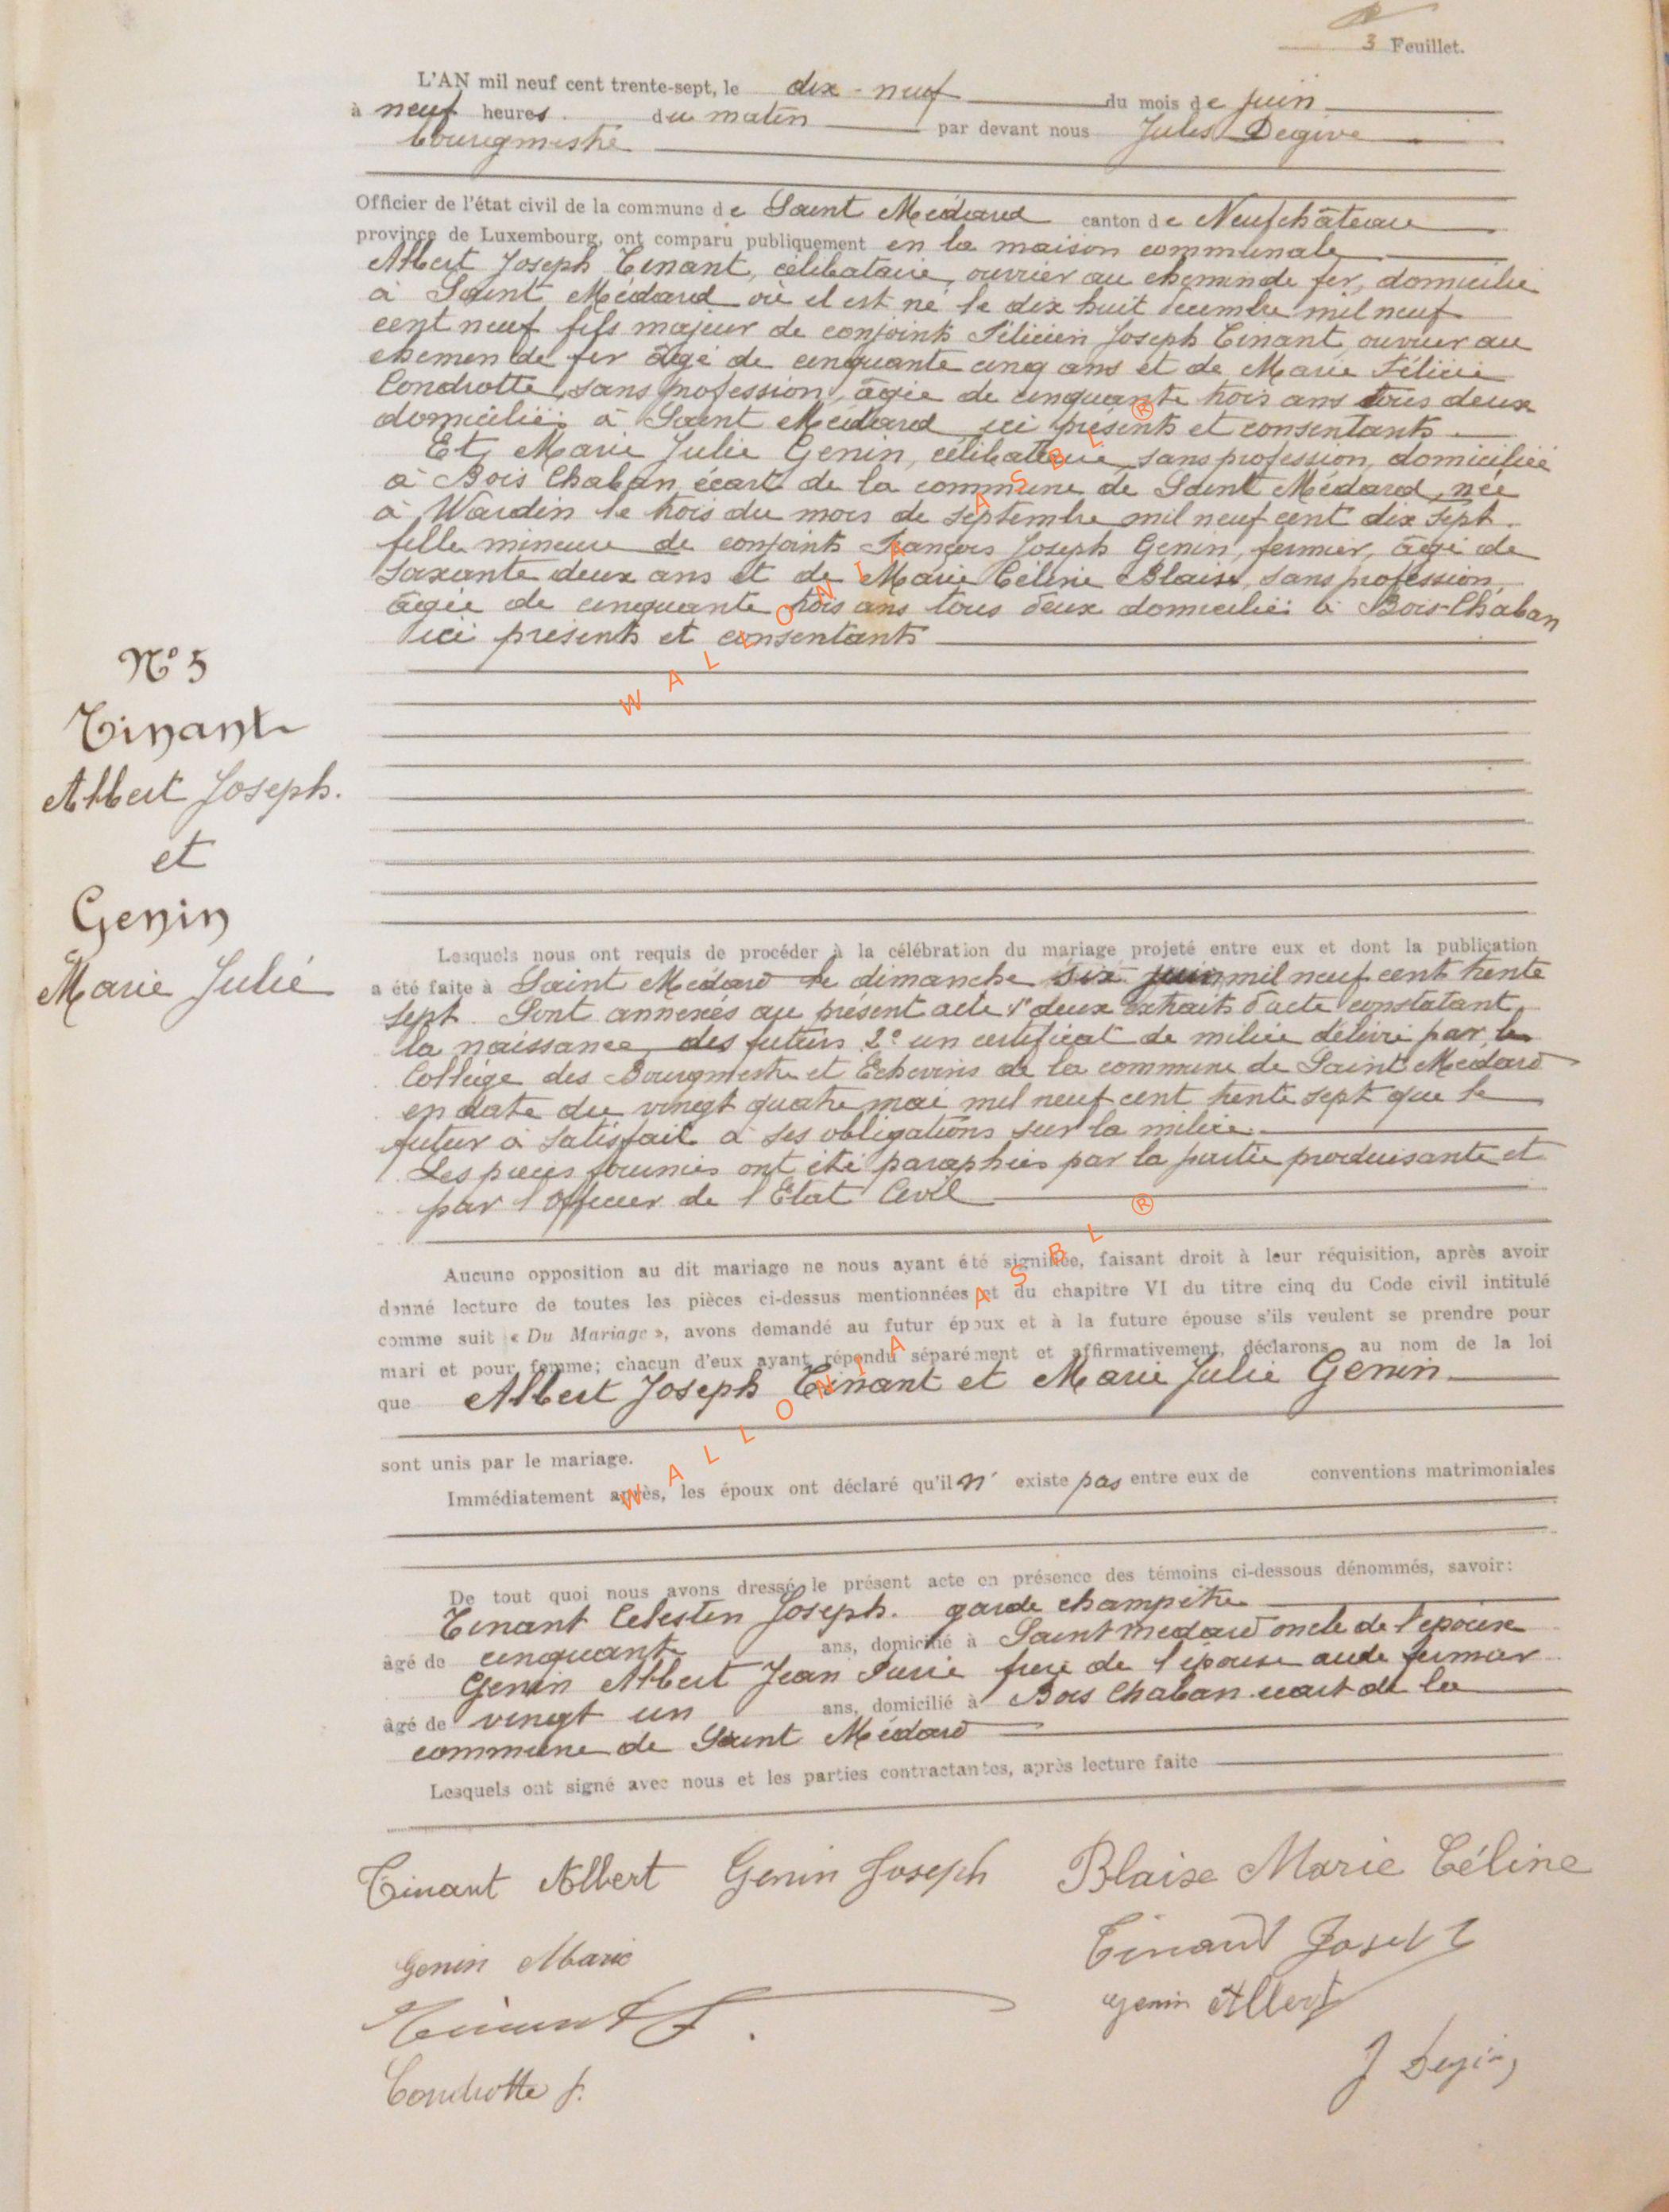 3 Feuillet.
L'AN mil neuf cent trente-sept, le dix-neuf du mois de juin
à neuf heures du matin par devant nous Jules Degive
bourgmestre
Officier de l'état civil de la commune de Saint Médard canton de Neufchâteau
province de Luxembourg, ont comparu publiquement en la maison communale
Albert Joseph Tinant, célibataire, ouvrier au chemin de fer, domicilié
à Saint Médard où il est né le dix huit décembre mil neuf
cent neuf fils majeur de conjoints Félicien Joseph Tinant, ouvrier au
chemin de fer âgé de cinquante cinq ans et de Marie Félicie
Condrotte, sans profession, âgée de cinquante trois ans tous deux
domiciliés à Saint Médard ici présents et consentants
Et, Marie Julie Genin, célibataire, sans profession, domiciliée
à Bois Chaban écart de la commune de Saint Médard, née
à Wardin le trois du mois de septembre mil neuf cent dix sept.
fille mineure de conjoints François Joseph Genin, fermier, âgé de
soixante deux ans et de Marie Céline Blaise, sans profession,
âgée de cinquante trois ans tous deux domiciliés à Bois-Chaban
ici présents et consentants
N° 5
Tinant
Albert Joseph.
et
Genin
Marie Julie
Lesquels nous ont requis de procéder à la célébration du mariage projeté entre eux et dont la publication
a été faite à Saint Médard le dimanche six juin mil neuf cent trente
sept. Sont annexés au présent acte 1° deux extraits d'acte constatant
la naissance des futurs 2° un certificat de milice délivré par le
Collège des Bourgmestre et Echevins de la commune de Saint Médard
en date du vingt quatre mai mil neuf cent trente sept que le
futur a satisfait à ses obligations sur la milice.
Les pièces fournies ont été paraphées par la partie produisante et
par l'Officier de l'Etat Civil
Aucune opposition au dit mariage ne nous ayant été signifiée, faisant droit à leur réquisition, après avoir
donné lecture de toutes les pièces ci-dessus mentionnées et du chapitre VI du titre cinq du Code civil intitulé
comme suit « Du Mariage », avons demandé au futur époux et à la future épouse s'ils veulent se prendre pour
mari et pour femme; chacun d'eux ayant répondu séparément et affirmativement, déclarons au nom de la loi
que Albert Joseph Tinant et Marie Julie Genin
sont unis par le mariage.
Immédiatement après, les époux ont déclaré qu'il n' existe pas entre eux de conventions matrimoniales
De tout quoi nous avons dressé le présent acte en présence des témoins ci-dessous dénommés, savoir:
Tinant Célestin Joseph. garde champêtre
âgé de cinquante ans, domicilié à Saint médard oncle de l'épouse
Genin Albert Jean frère de l'épouse aide fermier
âgé de vingt un ans, domicilié à Bois Chaban écart de la
commune de Saint Médard
Lesquels ont signé avec nous et les parties contractantes, après lecture faite
Tinant Albert Genin Joseph Blaise Marie Céline
Genin Marie Tinant Joseph
Tinant F. Genin Albert
Condrotte f. J Degive
WALLONIA ASBL ®
WALLONIA ASBL ®